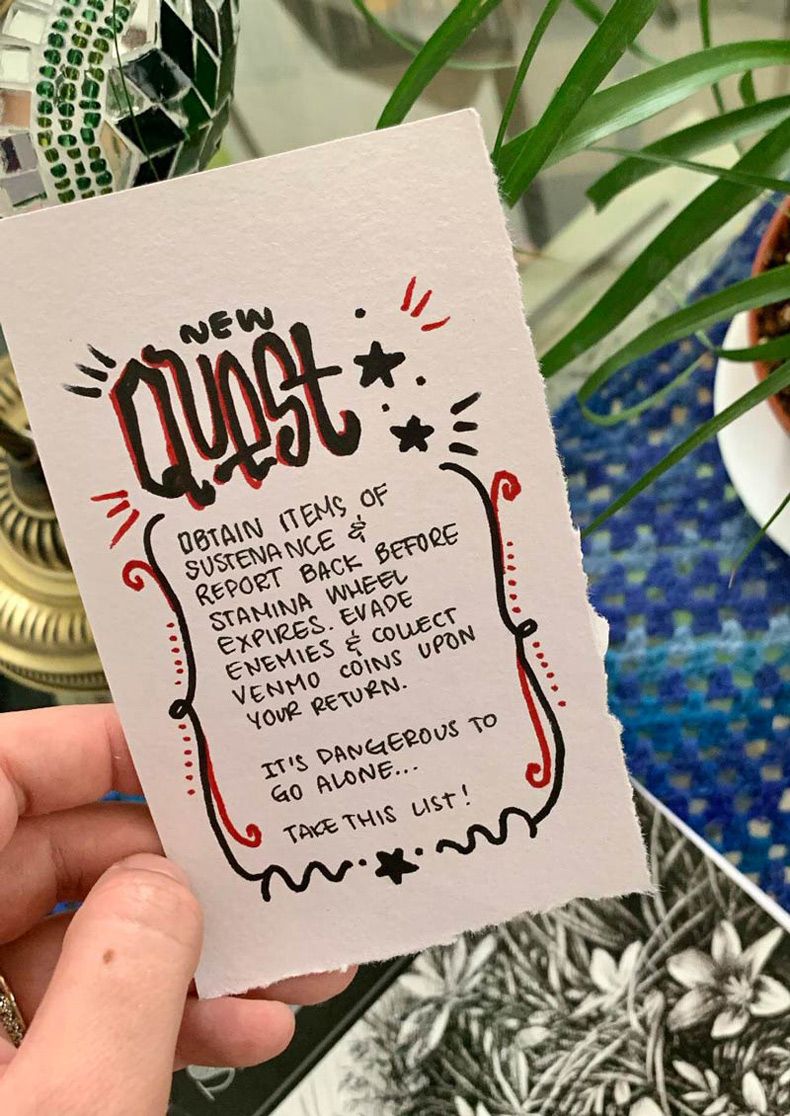 NEW
QUEST
OBTAIN ITEMS OF
SUSTENANCE &
REPORT BACK BEFORE
STAMINA WHEEL
EXPIRES. EVADE
ENEMIES & COLLECT
VENMO COINS UPON
YOUR RETURN.
IT'S DANGEROUS TO
GO ALONE...
TAKE THIS LIST!